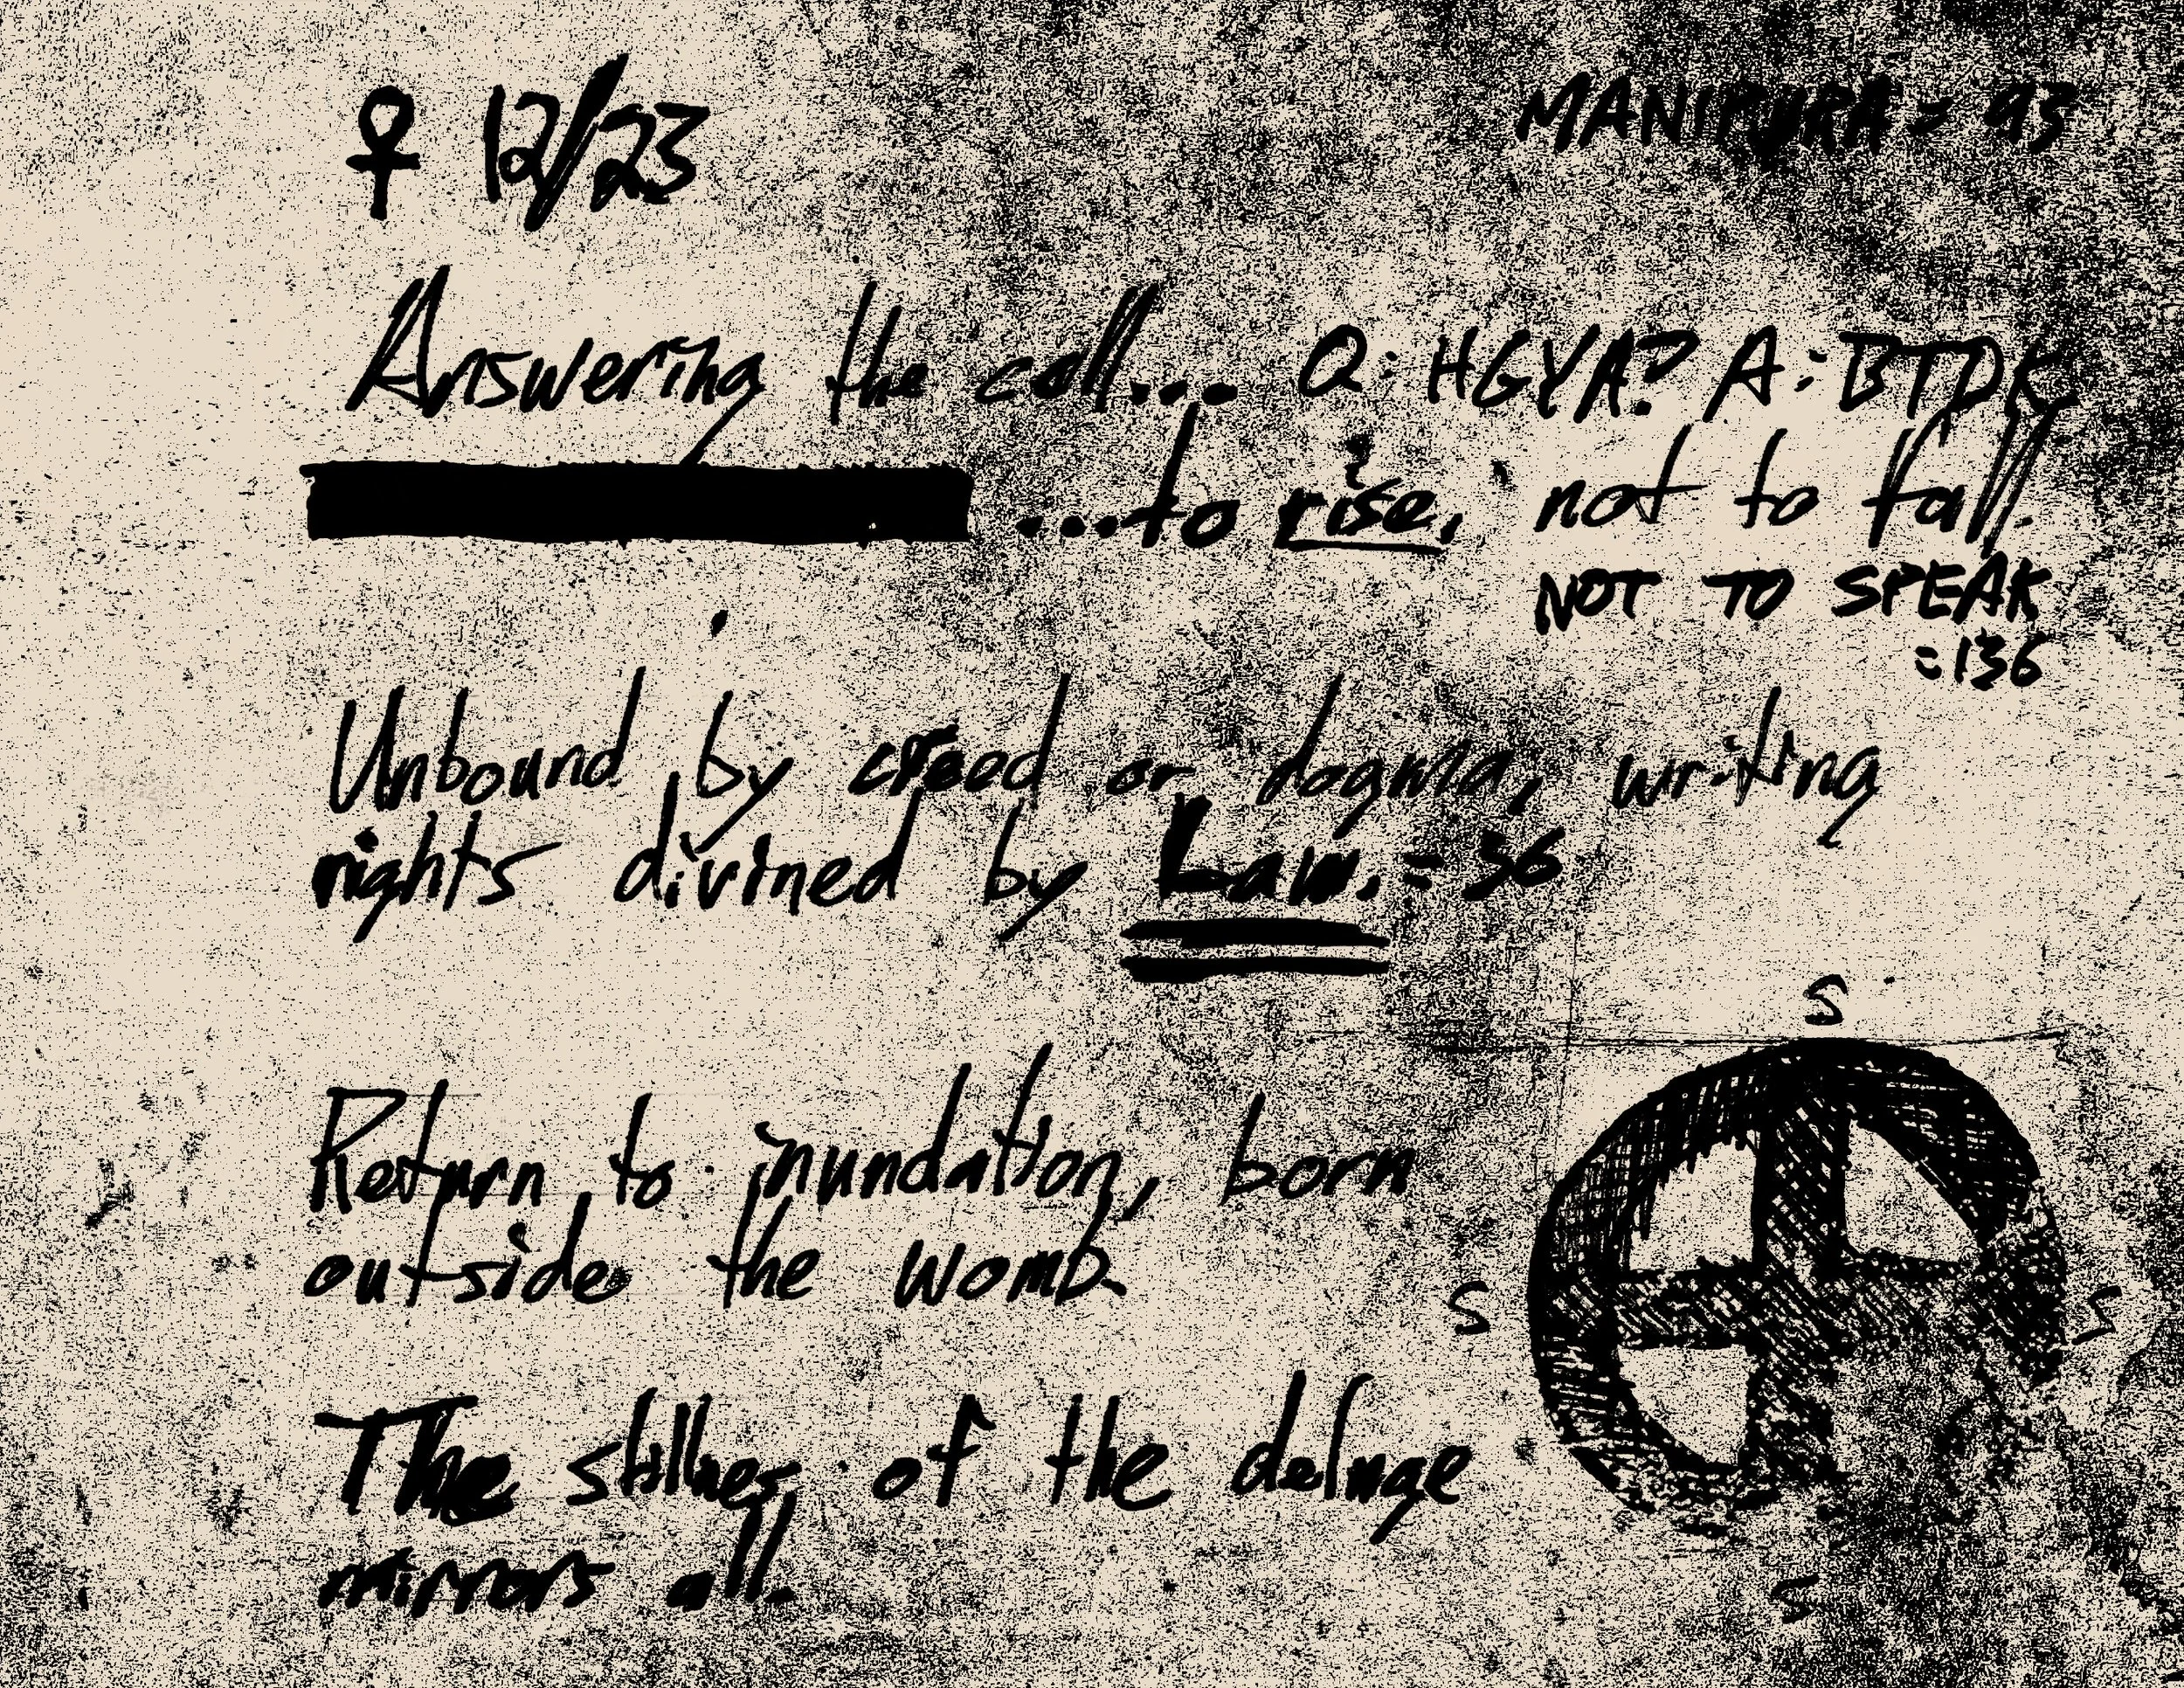 ♀ 12/23
MANIPURA = 93
Answering the call... Q: HGYA? A: BTDK
...to rise, not to fall.
NOT TO SPEAK
=136
Unbound by creed or dogma, writing
rights divined by Law. = 36
Return to inundation, born
outside the womb.
The stillness of the deluge
mirrors all.
S
S
S
S